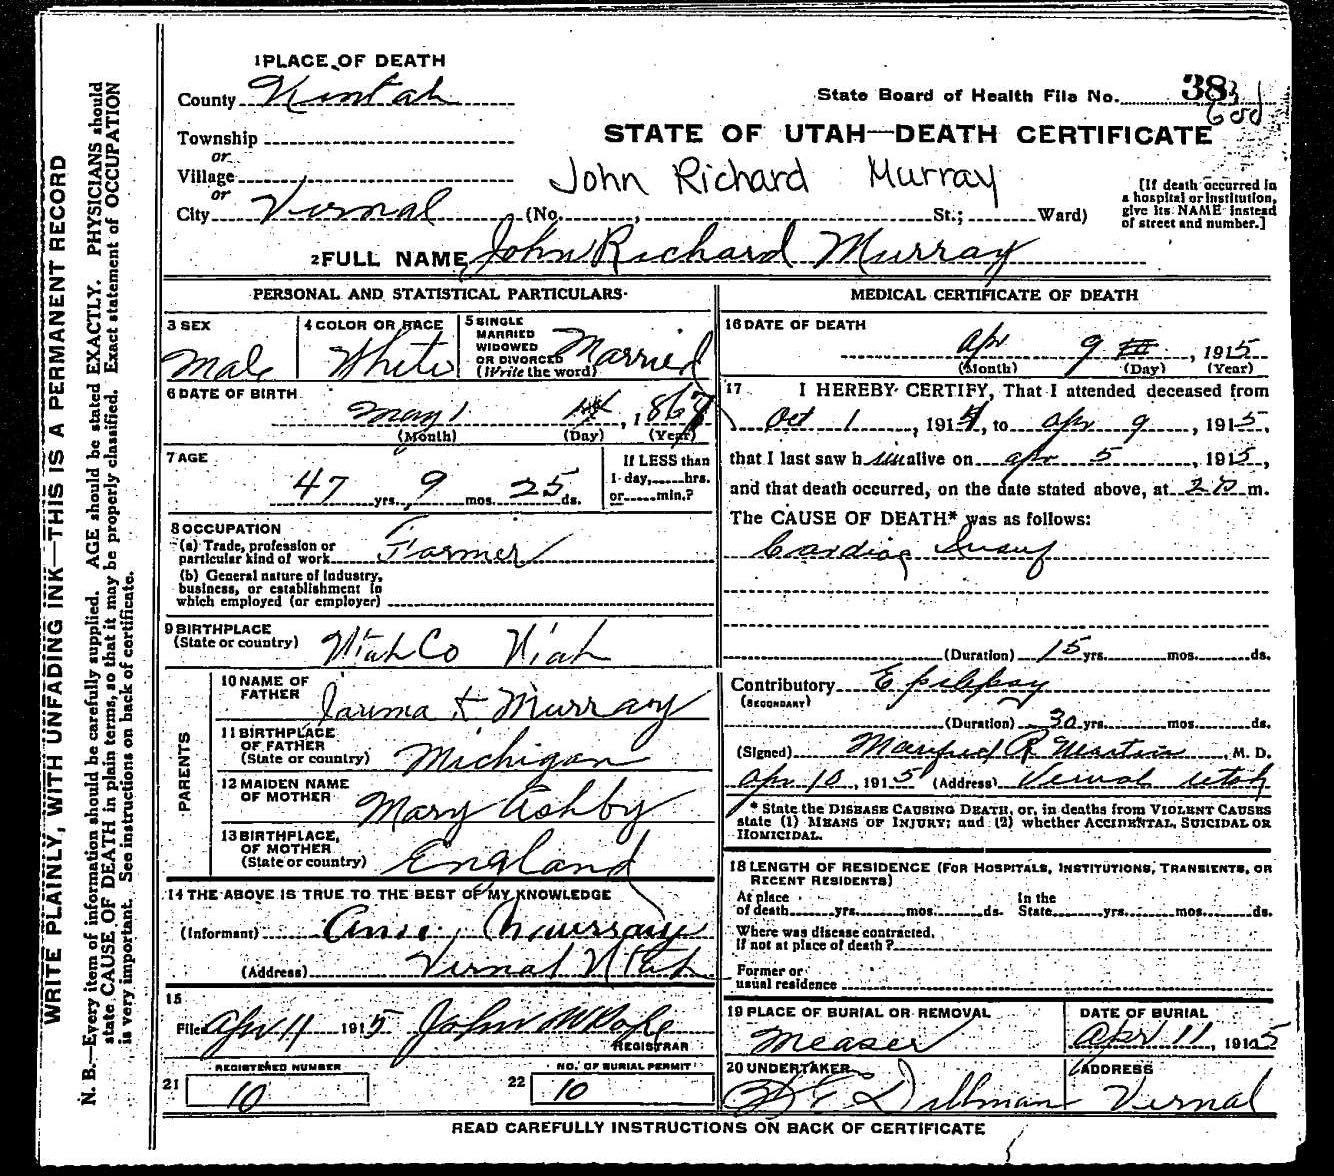 1 PLACE OF DEATH
County Uintah
State Board of Health File No. 383
Township
or
STATE OF UTAH—DEATH CERTIFICATE
Village
or
John Richard Murray
City Vernal (No. , St.; Ward)
[If death occurred in a hospital or institution, give its NAME instead of street and number.]
2 FULL NAME John Richard Murray
PERSONAL AND STATISTICAL PARTICULARS
3 SEX
Male
4 COLOR OR RACE
White
5 SINGLE
MARRIED
WIDOWED
OR DIVORCED
(Write the word)
Married
6 DATE OF BIRTH
May 1 , 1867
(Month) (Day) (Year)
7 AGE
47 yrs. 9 mos. 25 ds.
If LESS than
1 day, hrs.
or min.?
8 OCCUPATION
(a) Trade, profession or
particular kind of work Farmer
(b) General nature of industry,
business, or establishment in
which employed (or employer)
9 BIRTHPLACE
(State or country) Utah Co Utah
PARENTS
10 NAME OF
FATHER Murray
11 BIRTHPLACE
OF FATHER
(State or country) Michigan
12 MAIDEN NAME
OF MOTHER Mary Ashby
13 BIRTHPLACE
OF MOTHER
(State or country) England
14 THE ABOVE IS TRUE TO THE BEST OF MY KNOWLEDGE
(Informant)
(Address) Vernal Utah
15
Filed Apr 11 1915 John
REGISTRAR
REGISTERED NUMBER
21 10
NO. OF BURIAL PERMIT
22 10
MEDICAL CERTIFICATE OF DEATH
16 DATE OF DEATH
Apr 9 , 1915
(Month) (Day) (Year)
17 I HEREBY CERTIFY, That I attended deceased from
Oct 1 , 1914, to Apr 9 , 1915,
that I last saw him alive on Apr 5 , 1915,
and that death occurred, on the date stated above, at m.
The CAUSE OF DEATH* was as follows:
Cardiac Insuf
(Duration) 15 yrs. mos. ds.
Contributory Epilepsy
(SECONDARY)
(Duration) 30 yrs. mos. ds.
(Signed) Manfred R Martin , M. D.
Apr 10 , 1915 (Address) Vernal Utah
* State the DISEASE CAUSING DEATH, or, in deaths from VIOLENT CAUSES
state (1) MEANS OF INJURY; and (2) whether ACCIDENTAL, SUICIDAL OR
HOMICIDAL.
18 LENGTH OF RESIDENCE (FOR HOSPITALS, INSTITUTIONS, TRANSIENTS, OR
RECENT RESIDENTS)
At place
of death yrs. mos. ds.
In the
State yrs. mos. ds.
Where was disease contracted,
if not at place of death?
Former or
usual residence
19 PLACE OF BURIAL OR REMOVAL
Measer
DATE OF BURIAL
Apr 11 , 1915
20 UNDERTAKER
Dillman
ADDRESS
Vernal
READ CAREFULLY INSTRUCTIONS ON BACK OF CERTIFICATE
WRITE PLAINLY, WITH UNFADING INK—THIS IS A PERMANENT RECORD
N. B.—Every item of information should be carefully supplied. AGE should be stated EXACTLY. PHYSICIANS should
state CAUSE OF DEATH in plain terms, so that it may be properly classified. Exact statement of OCCUPATION
is very important. See instructions on back of certificate.